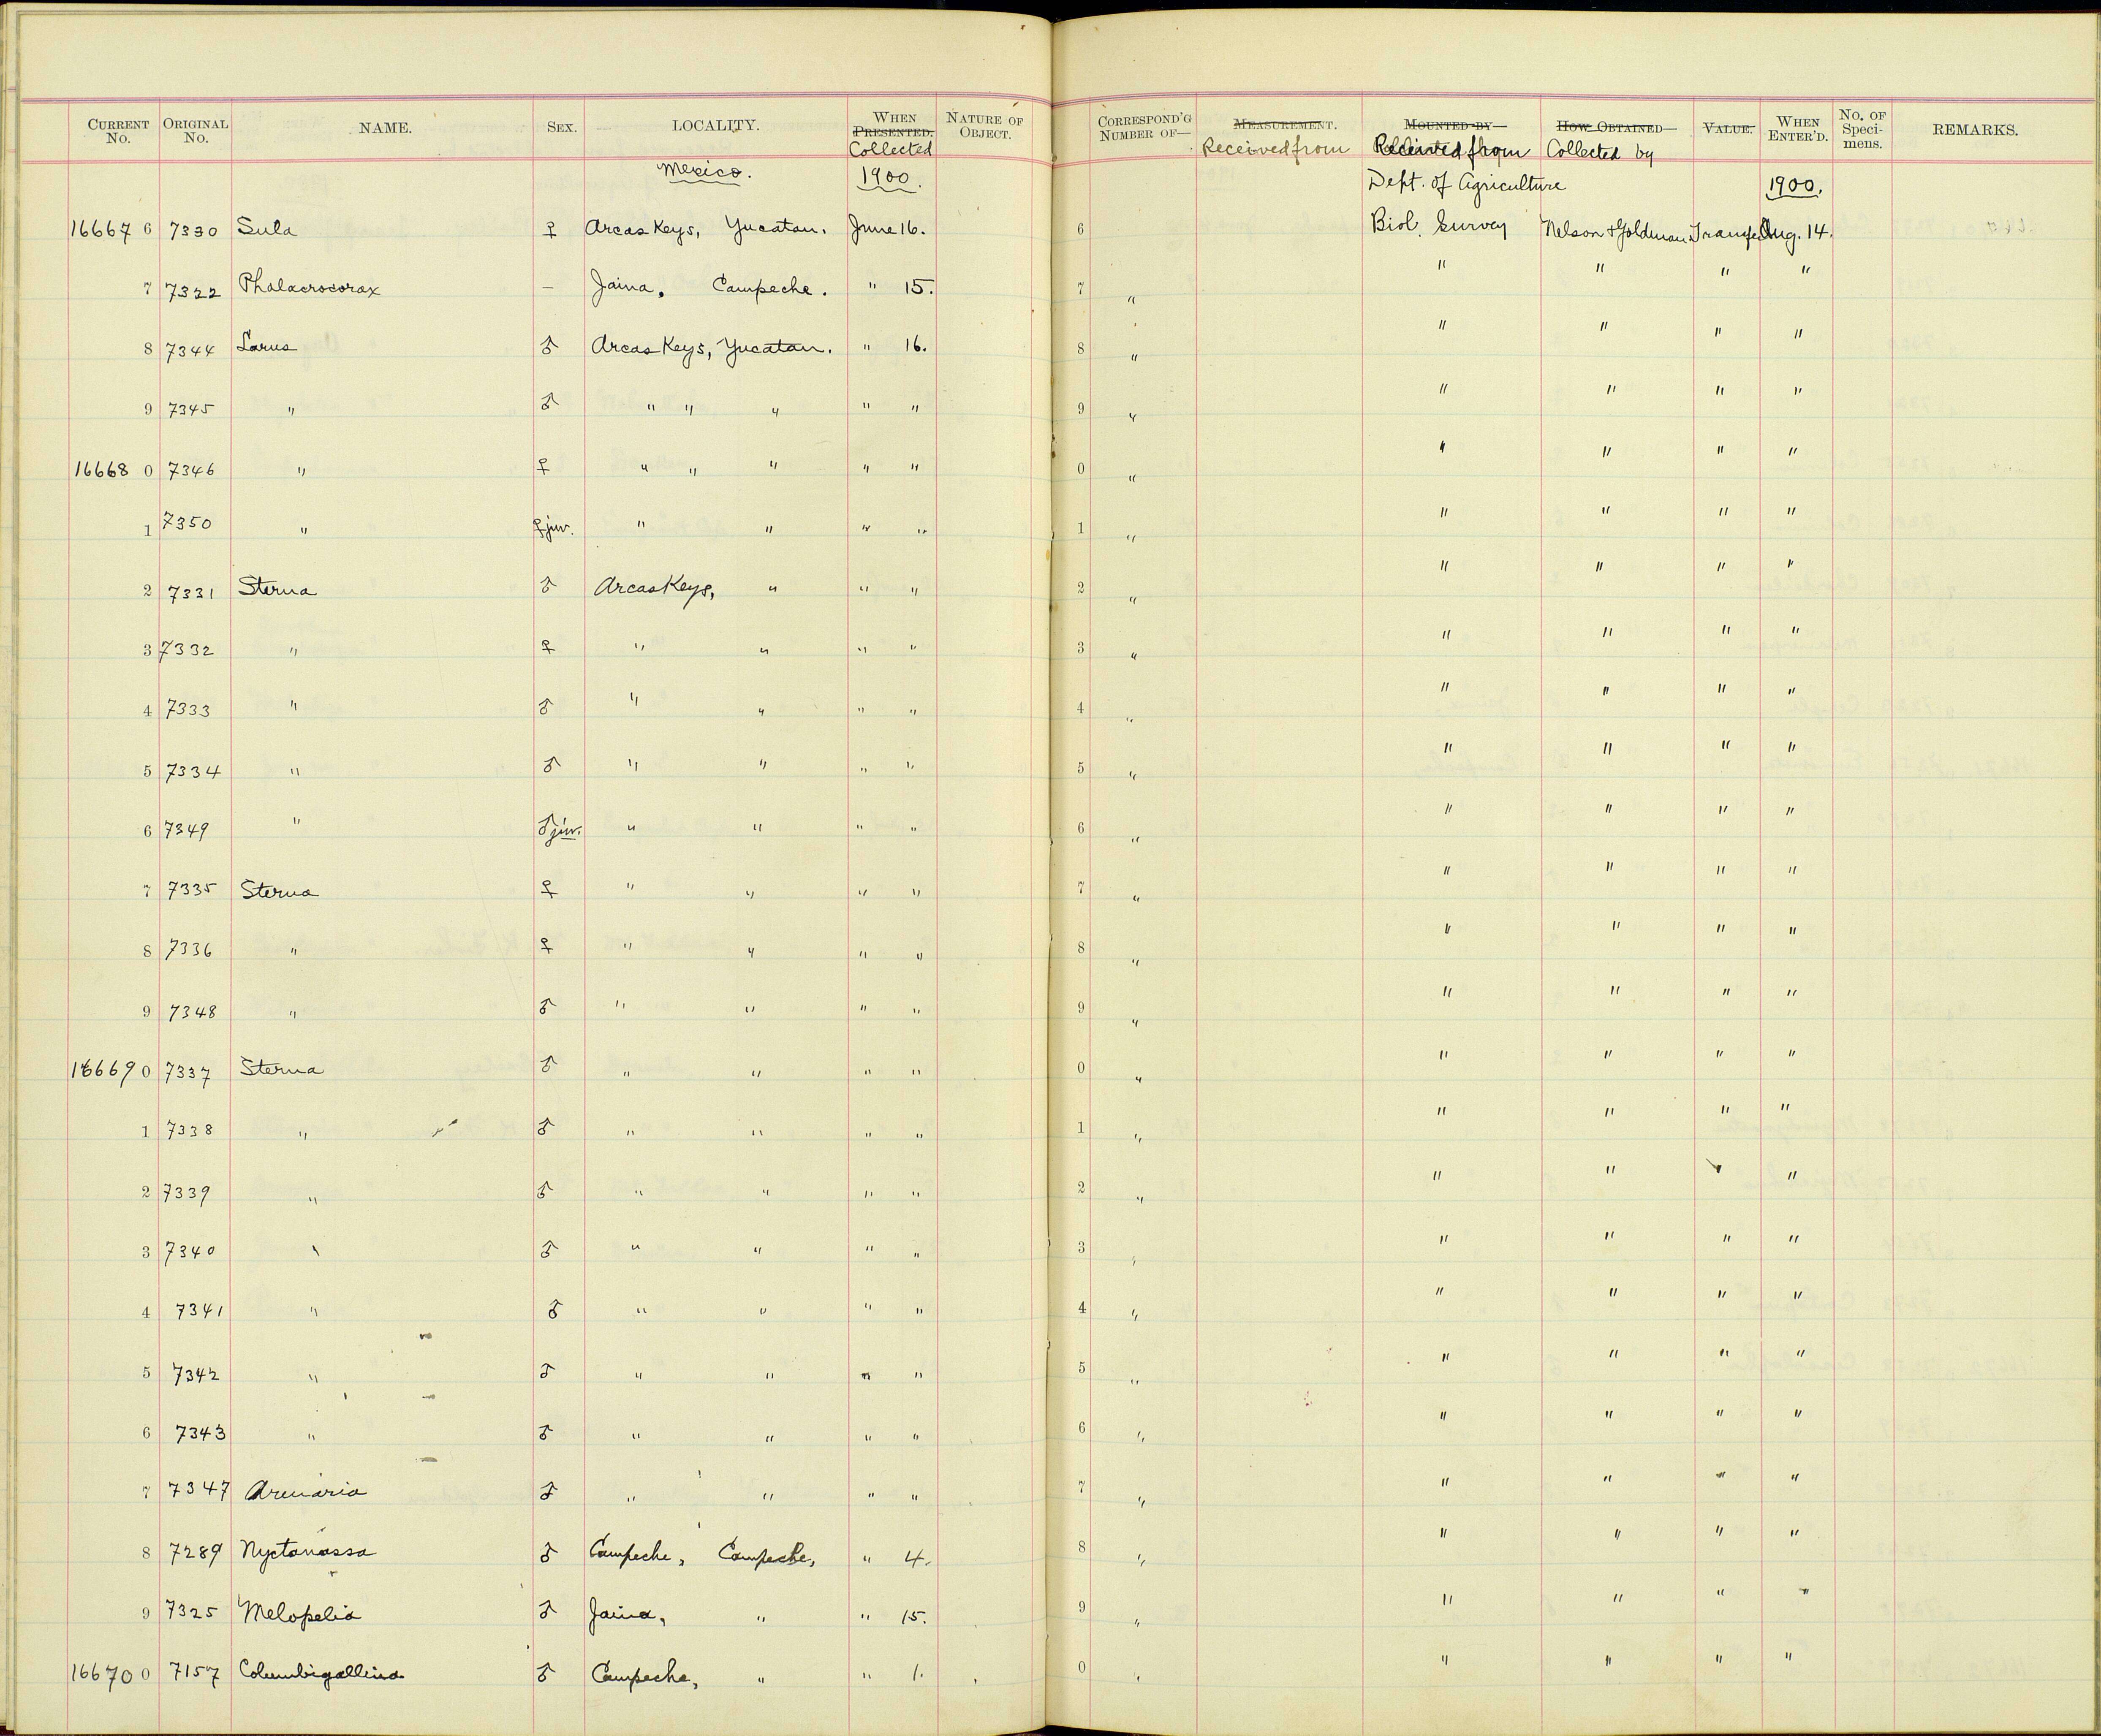 CURRENT No. ORIGINAL No. NAME. SEX. LOCALITY. WHEN PRESENTED. Collected NATURE OF OBJECT. CORRESPOND'G NUMBER OF— MEASUREMENT. Received from MOUNTED BY— Received from HOW OBTAINED— Collected by VALUE. WHEN ENTER'D. No. OF Speci-mens. REMARKS.
Mexico. 1900. Dept. of Agriculture 1900.
16667 6 7330 Sula ♀ Arcas Keys, Yucatan. June 16. 6 Biol. Survey Nelson & Goldman Transfer Aug. 14.
7 7322 Phalacrocorax — Jaina, Campeche. " 15. 7 " " " " "
8 7344 Larus ♂ Arcas Keys, Yucatan. " 16. 8 " " " " "
9 7345 " ♂ " " " " " 9 " " " " "
16668 0 7346 " ♀ " " " " " 0 " " " " "
1 7350 " ♀ juv. " " " " 1 " " " " "
2 7331 Sterna ♂ Arcas Keys, " " " 2 " " " " "
3 7332 " ♀ " " " " 3 " " " " "
4 7333 " ♂ " " " " 4 " " " " "
5 7334 " ♂ " " " " 5 " " " " "
6 7349 " ♂ juv. " " " " 6 " " " " "
7 7335 Sterna ♀ " " " " 7 " " " " "
8 7336 " ♀ " " " " 8 " " " " "
9 7348 " ♂ " " " " 9 " " " " "
16669 0 7337 Sterna ♂ " " " " 0 " " " " "
1 7338 " ♂ " " " " 1 " " " " "
2 7339 " ♂ " " " " 2 " " " " "
3 7340 " ♂ " " " " 3 " " " " "
4 7341 " ♂ " " " " 4 " " " " "
5 7342 " ♂ " " " " 5 " " " " "
6 7343 " ♂ " " " " 6 " " " " "
7 7347 Arenaria ♂ " " " " 7 " " " " "
8 7289 Nyctanassa ♂ Campeche, Campeche, " 4. 8 " " " " "
9 7325 Melopelia ♂ Jaina, " " 15. 9 " " " " "
16670 0 7157 Columbigallina ♂ Campeche, " " 1. 0 " " " " "